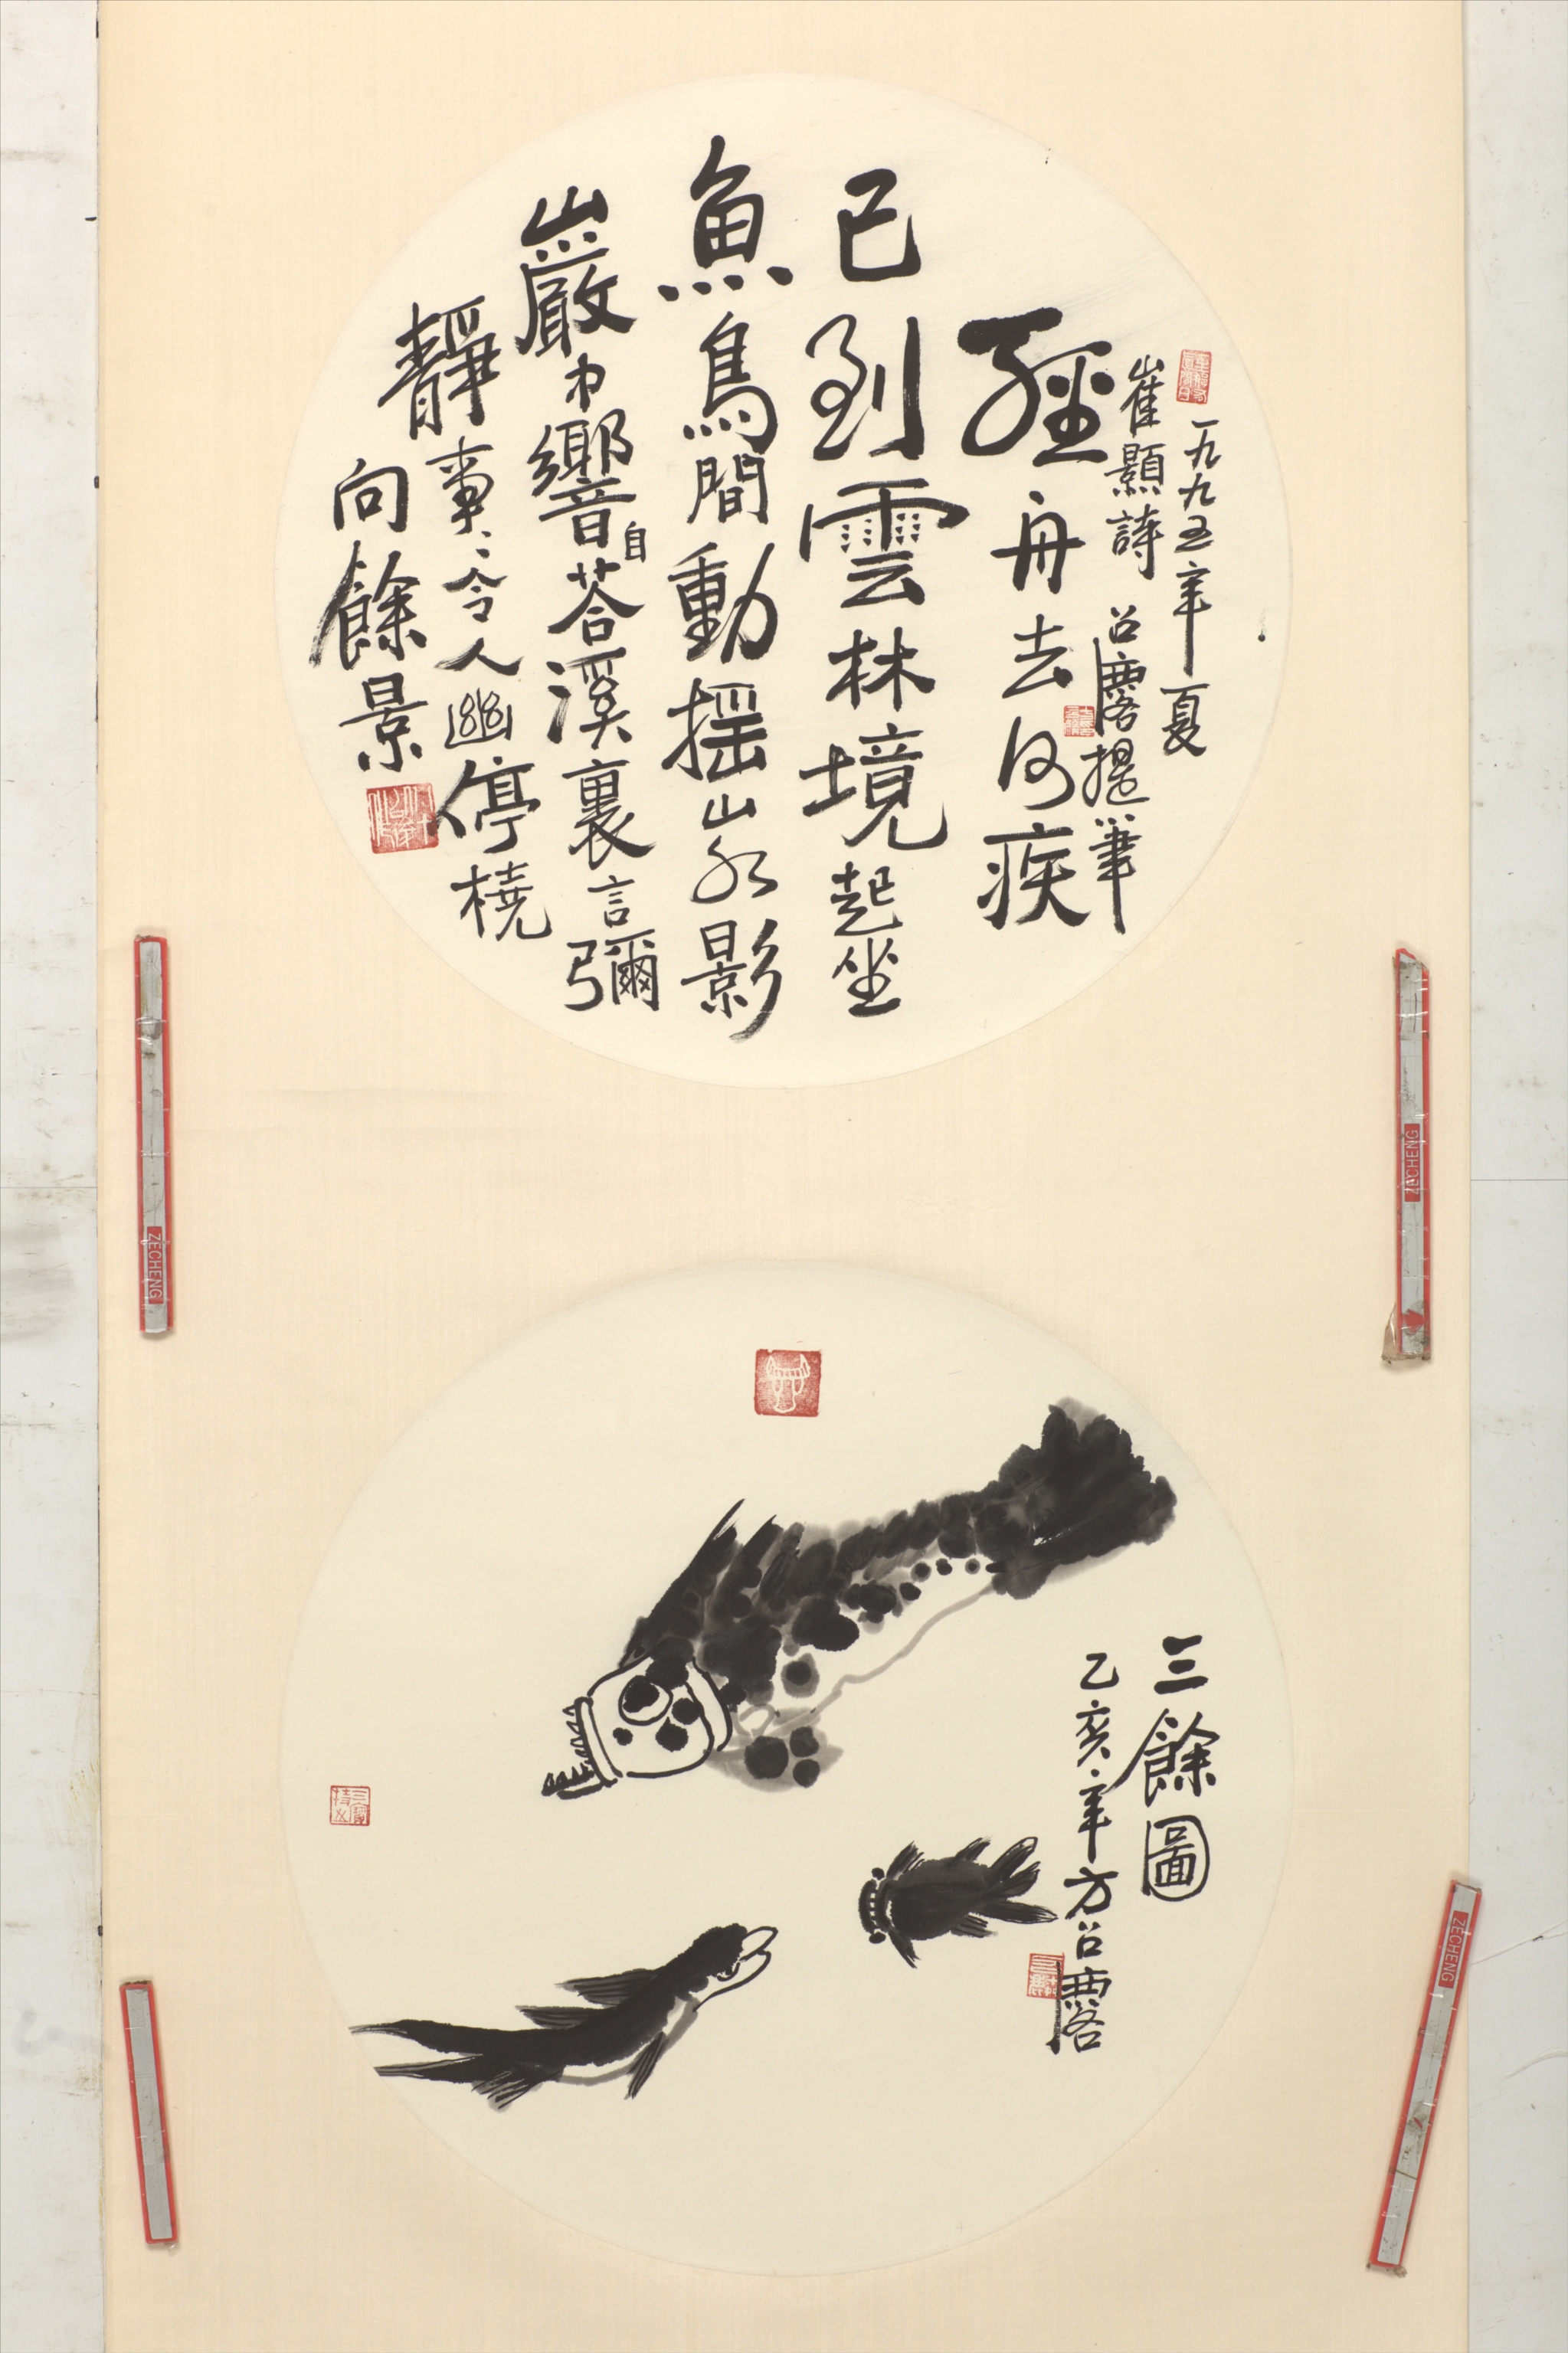 一九九五年夏
崔顥詩 召麐提筆
輕舟去何疾
已到雲林境起坐
魚鳥間動搖山水影
巖中響自荅溪裏言彌
靜事〻令人幽停橈
向餘景
三餘圖
乙亥年方召麐
ZECHENG
ZECHENG
ZECHENG